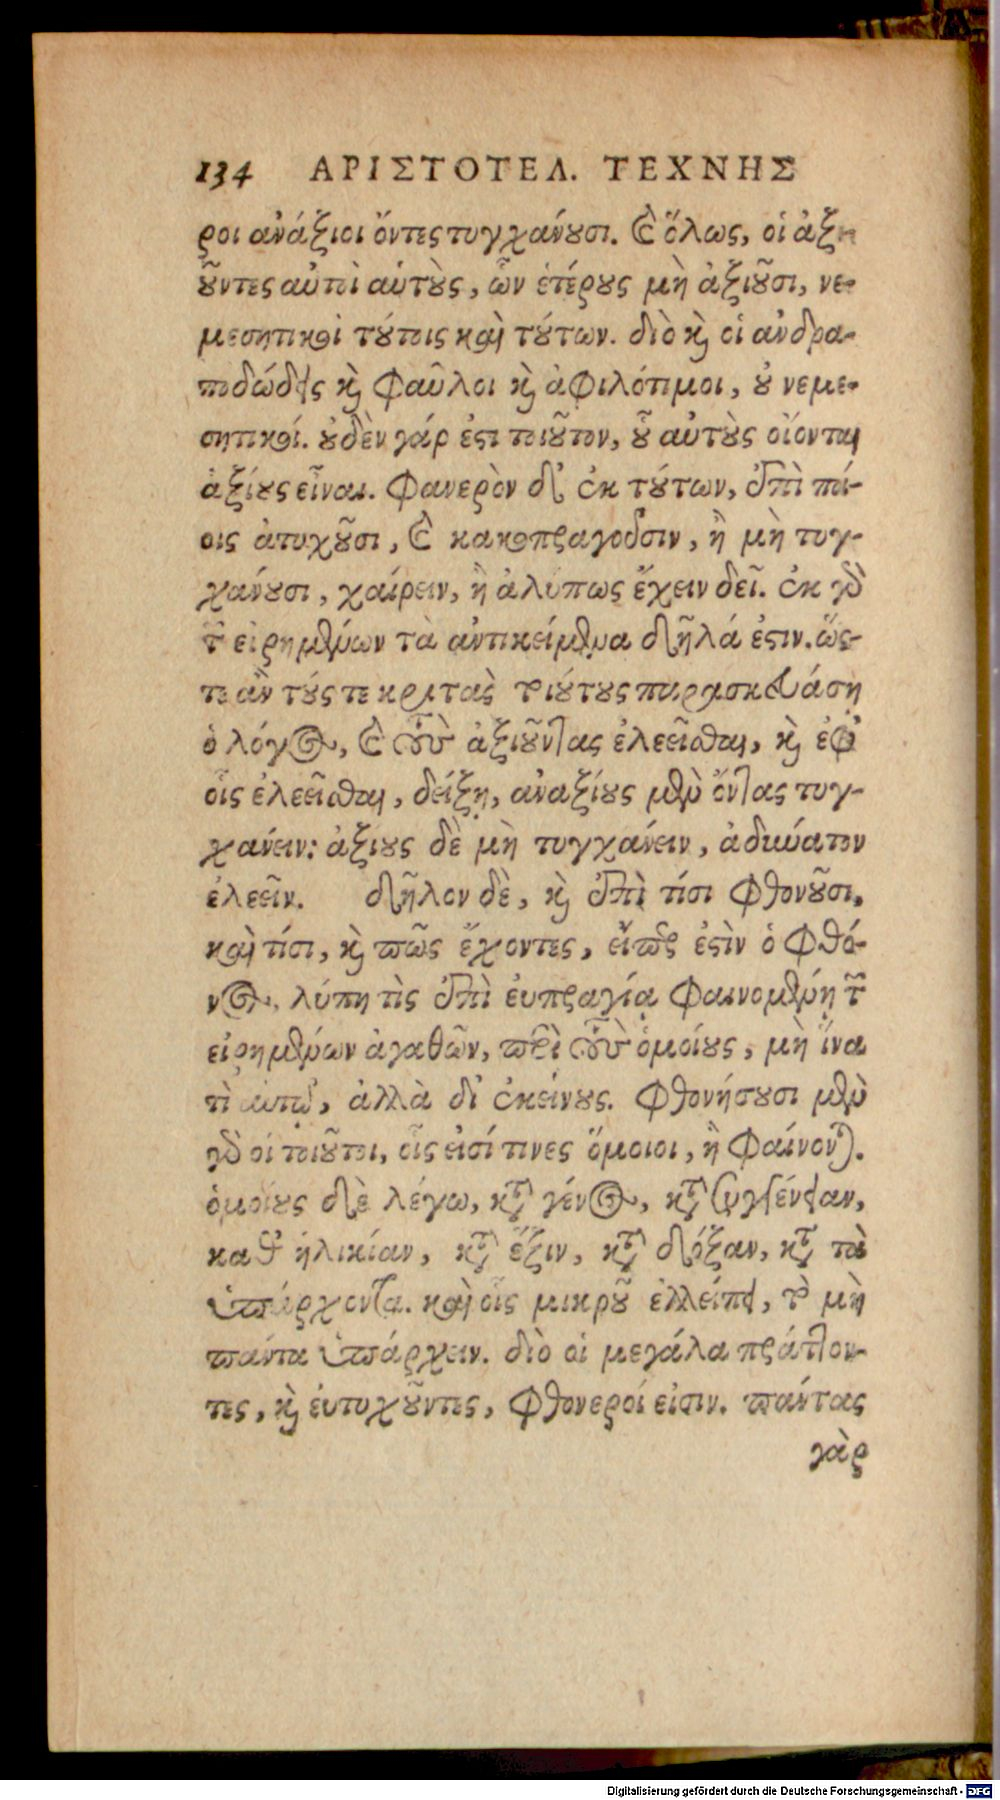 134 ΑΡΙΣΤΟΤΕΛ. ΤΕΧΝΗΣ
ροι ἀνάξιοι ὄντες τυγχάνουσι. καὶ ὅλως, οἱ ἀξι
οῦντες αὐτοὶ αὑτοὺς, ὧν ἑτέρους μὴ ἀξιοῦσι, νε-
μεσητικοὶ τούτοις καὶ τούτων. διὸ καὶ οἱ ἀνδρα-
ποδώδεις καὶ φαῦλοι καὶ ἀφιλότιμοι, οὐ νεμε-
σητικοί. οὐδὲν γάρ ἐστι τοιοῦτον, οὗ αὐτοὺς οἴονται
ἀξίους εἶναι. Φανερὸν δ' ἐκ τούτων, ἐπὶ ποί-
οις ἀτυχοῦσι, καὶ κακοπραγοῦσιν, ἢ μὴ τυγ-
χάνουσι, χαίρειν, ἢ ἀλύπως ἔχειν δεῖ. ἐκ γὰρ
τῶν εἰρημένων τὰ ἀντικείμενα δῆλά ἐστιν. ὥς-
τε ἂν τούς τε κριτὰς τοιούτους παρασκευάσῃ
ὁ λόγος, καὶ τοὺς ἀξιοῦντας ἐλεεῖσθαι, καὶ ἐφ'
οἷς ἐλεεῖσθαι, δείξῃ, ἀναξίους μὲν ὄντας τυγ-
χάνειν: ἀξίους δὲ μὴ τυγχάνειν, ἀδύνατον
ἐλεεῖν. δῆλον δὲ, καὶ ἐπὶ τίσι φθονοῦσι,
καὶ τίσι, καὶ πῶς ἔχοντες, εἴπερ ἐστὶν ὁ φθό-
νος, λύπη τὶς ἐπὶ εὐπραγίᾳ φαινομένῃ τῶν
εἰρημένων ἀγαθῶν, περὶ τοὺς ὁμοίους, μὴ ἵνα
τὶ αὑτῷ, ἀλλὰ δι' ἐκείνους. Φθονήσουσι μὲν
γὰρ οἱ τοιοῦτοι, οἷς εἰσί τινες ὅμοιοι, ἢ φαίνονται.
ὁμοίους δὲ λέγω, κατὰ γένος, κατὰ συγγένειαν,
καθ' ἡλικίαν, κατὰ ἕξιν, κατὰ δόξαν, κατὰ τὰ
ὑπάρχοντα. καὶ οἷς μικροῦ ἐλλείπει, τὸ μὴ
πάντα ὑπάρχειν. διὸ οἱ μεγάλα πράττον-
τες, καὶ εὐτυχοῦντες, φθονεροί εἰσιν. πάντας
γὰρ
Digitalisierung gefördert durch die Deutsche Forschungsgemeinschaft - DFG